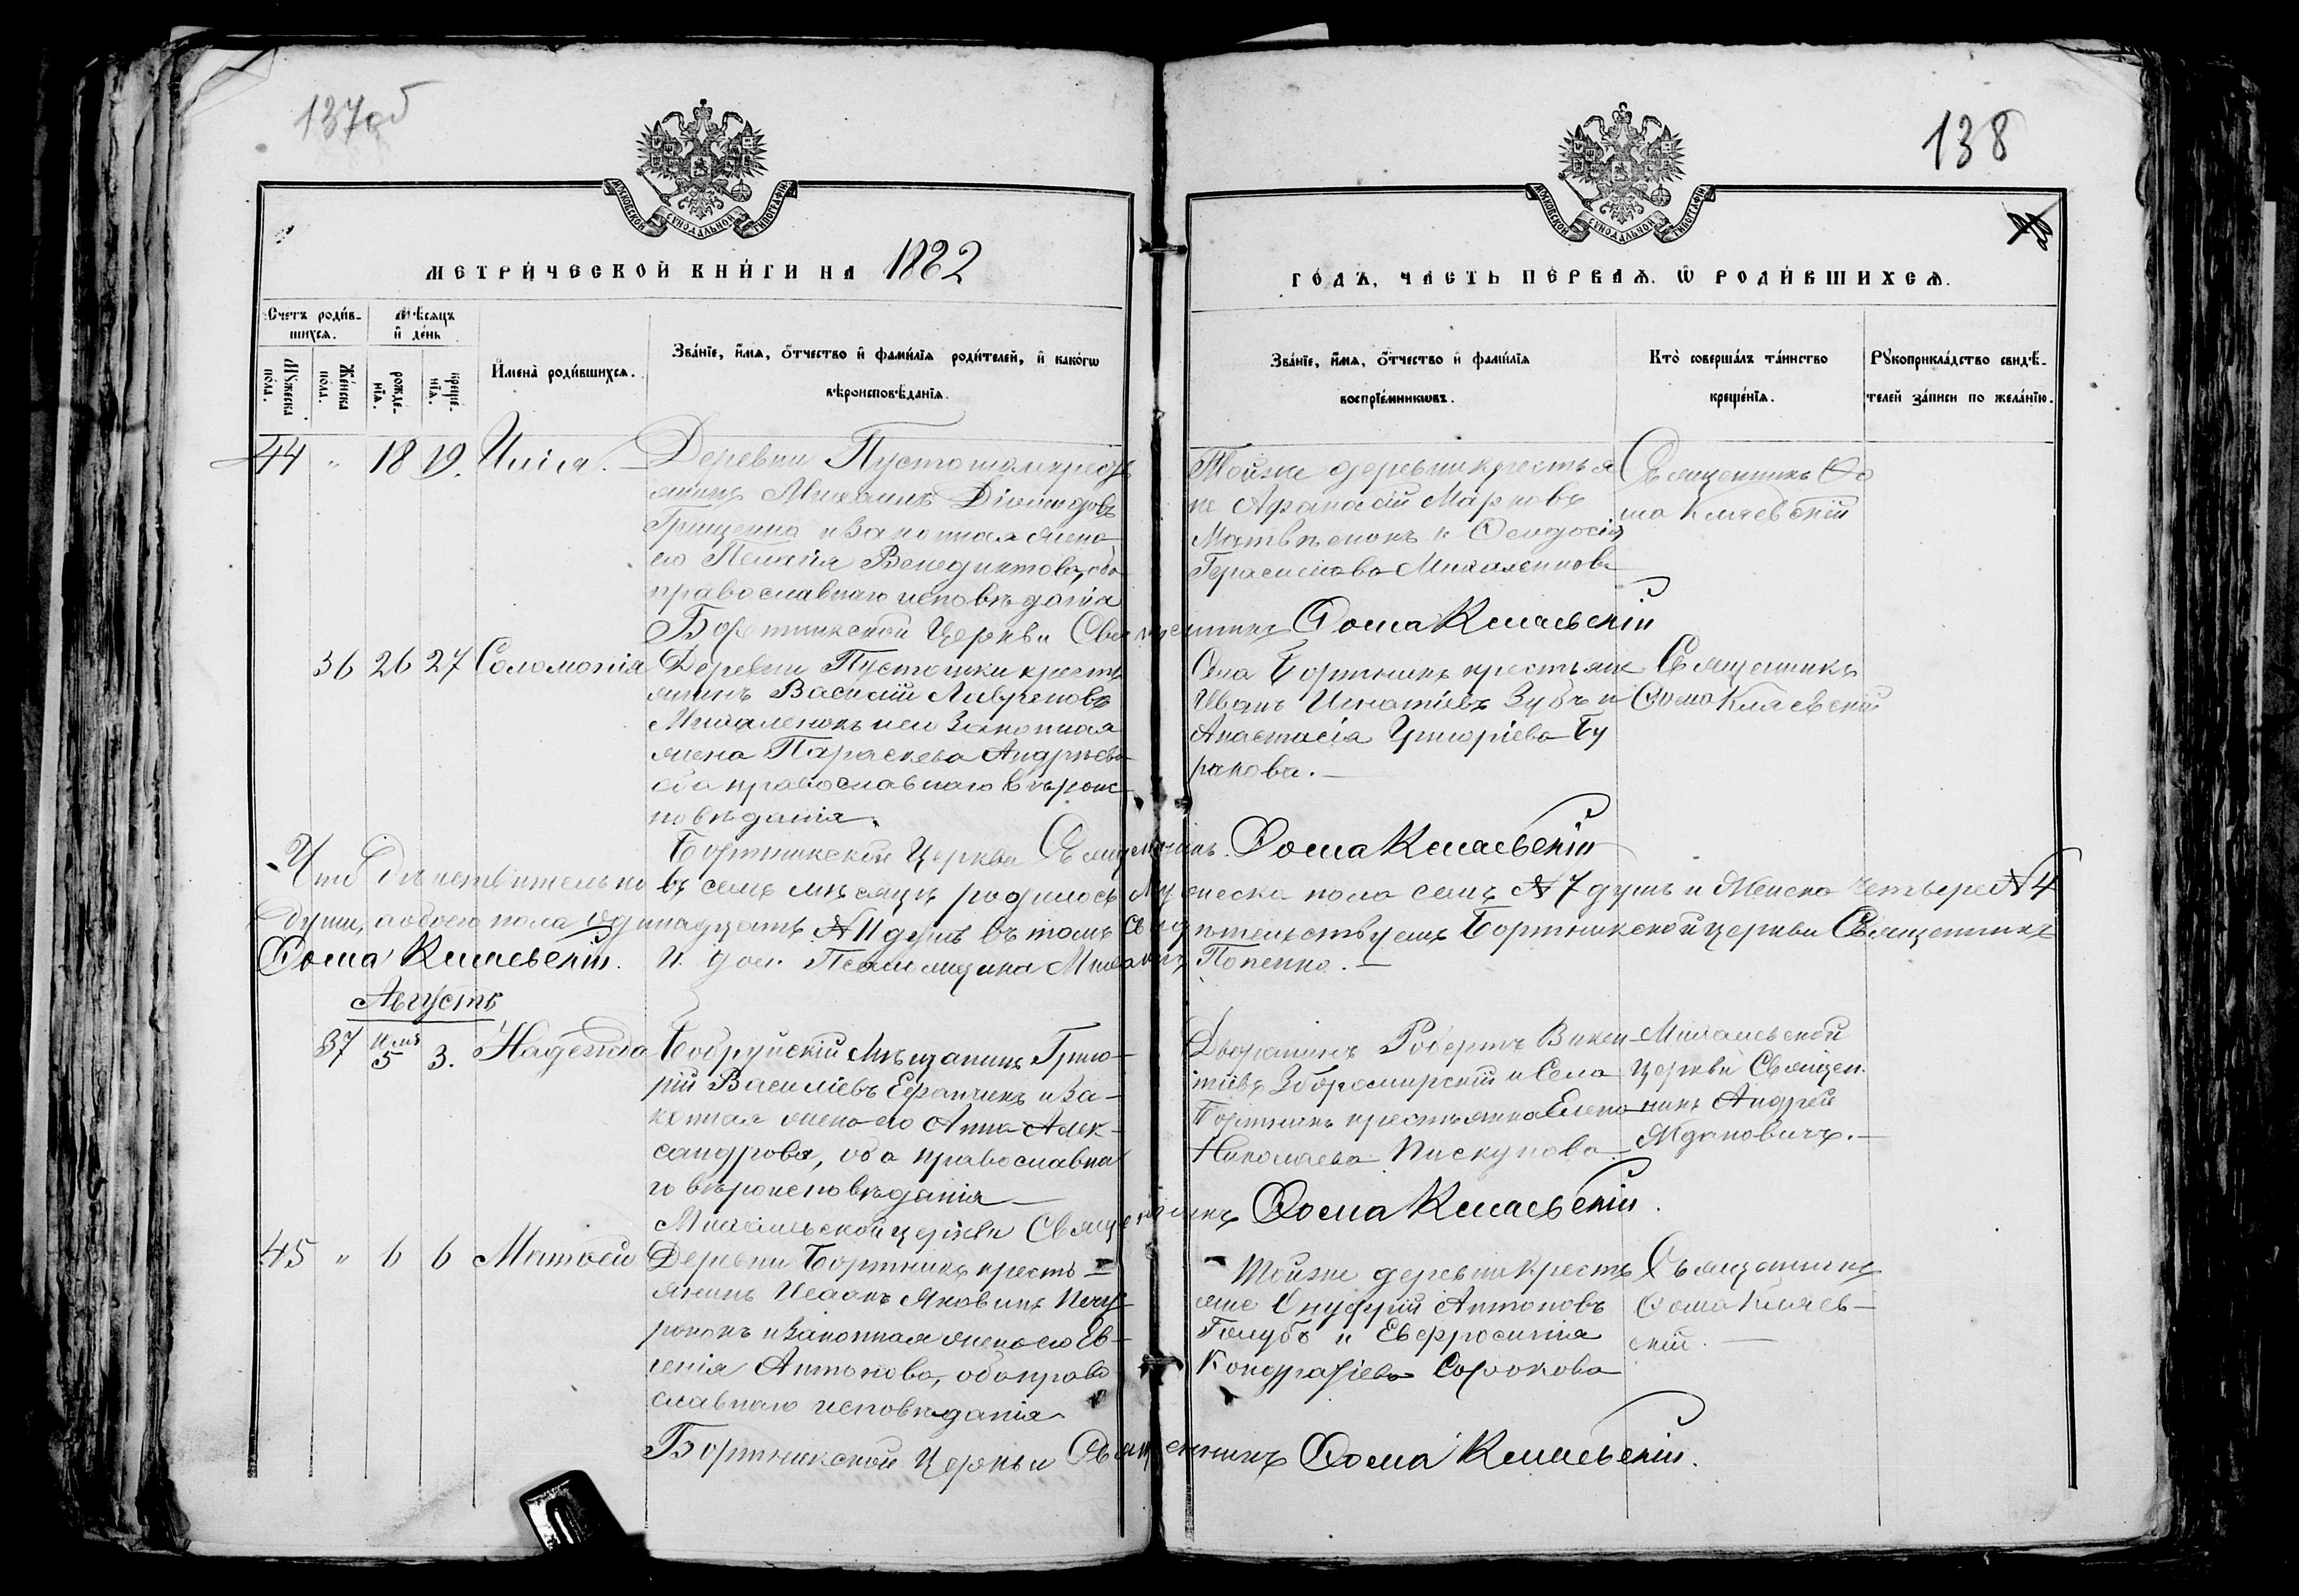 137об
138
МОСКОВСКОЙ СѴНОДАЛЬНОЙ ТИПОГРАФІИ
МОСКОВСКОЙ СѴНОДАЛЬНОЙ ТИПОГРАФІИ
МЕТРИ́ЧЕСКОЙ КНИ́ГИ НА 1882
ГО́ДЪ, ЧА́СТЬ ПЕ́РВАѦ, Ѿ РОДИ́ВШИХСѦ.
Счетъ роди́в-
шихсѧ.
Мѣ́сѧцъ
и҆ де́нь
Мꙋ́жеска
по́ла.
Же́нска
по́ла.
рожде-
нїѧ.
креще-
нїѧ.
И҆мена̀ роди́вшихсѧ.
Зва́нїе, и҆́мѧ, ѻ҆́тчество и҆ фами́лїѧ роди́телей, и҆ како́гѡ
вѣроисповѣ́данїѧ.
Зва́нїе, и҆́мѧ, ѻ҆́тчество и҆ фами́лїѧ
воспрїе́мникѡвъ.
Кто̀ соверша́лъ та́инство
креще́нїѧ.
Рꙋкоприкла́дство свидѣ́-
телей за́писи по жела́нїю.
44 " 18 19. Илія. Деревни
Михаилъ Діомидовъ
Грищенко и законная жена
его Пелагія Венедиктова, оба
православнаго исповѣданія
Той же деревни крестья
не Афанасій Марковъ
Матвѣенокъ и Ѳеодосія
Герасимова Михаленкова
Священникъ Ѳо
ма Кляевскій
Бортникской Церкви Священникъ Ѳома Кляевскій
36 26 27 Соломонія Деревни Пустошки кресть
янинъ Василій
Михаленокъ и его законная
жена Параскева Андреева
оба православнаго вѣроис
повѣданія.
Села Бортникъ крестьяне
Иванъ Игнатіевъ Зубъ и
Анастасія Григоріева Бу
ракова.
Священникъ
Ѳома Кляевскій
Бортникской Церкви Священникъ Ѳома Кляевскій
Что дѣйствительно въ семъ мѣсяцѣ родилось мужеска пола семь № 7 душъ и Женска четыре № 4
души, а обоего пола одинадцать № 11 душъ въ томъ свидѣтельствуемъ Бортникской церкви Священникъ
Ѳома Кляевскій. И. дол. Псаломщика Михаилъ Попенко.
Августъ
37 Іюля 5 3. Надежда Бобруйскій Мѣщанинъ Григо-
рій Василіевъ и За-
конная жена его Анна Алек-
сандрова, оба православна
го вѣроисповѣданія
Дворянинъ Робертъ Викен
тіевъ и Села
Бортникъ крестьянка Елена
Николаева Пискунова
Михалевской
Церкви Священ-
никъ Андрей
Ждановичъ.
Михалевской церкви Священникъ Ѳома Кляевскій.
45 " 6 6 Матѳей Деревни Бортникъ кресть-
янинъ Исаакъ Яковлевъ
и законная жена его Ев-
генія Антонова, оба право
славнаго исповѣданія
Той же деревни кресть
яне Онуфрій Антоновъ
Голубъ и Евфросинія
Кондратіева Сорокова
Священникъ
Ѳома Кляев-
скій.
Бортникской Церкви Священникъ Ѳома Кляевскій.